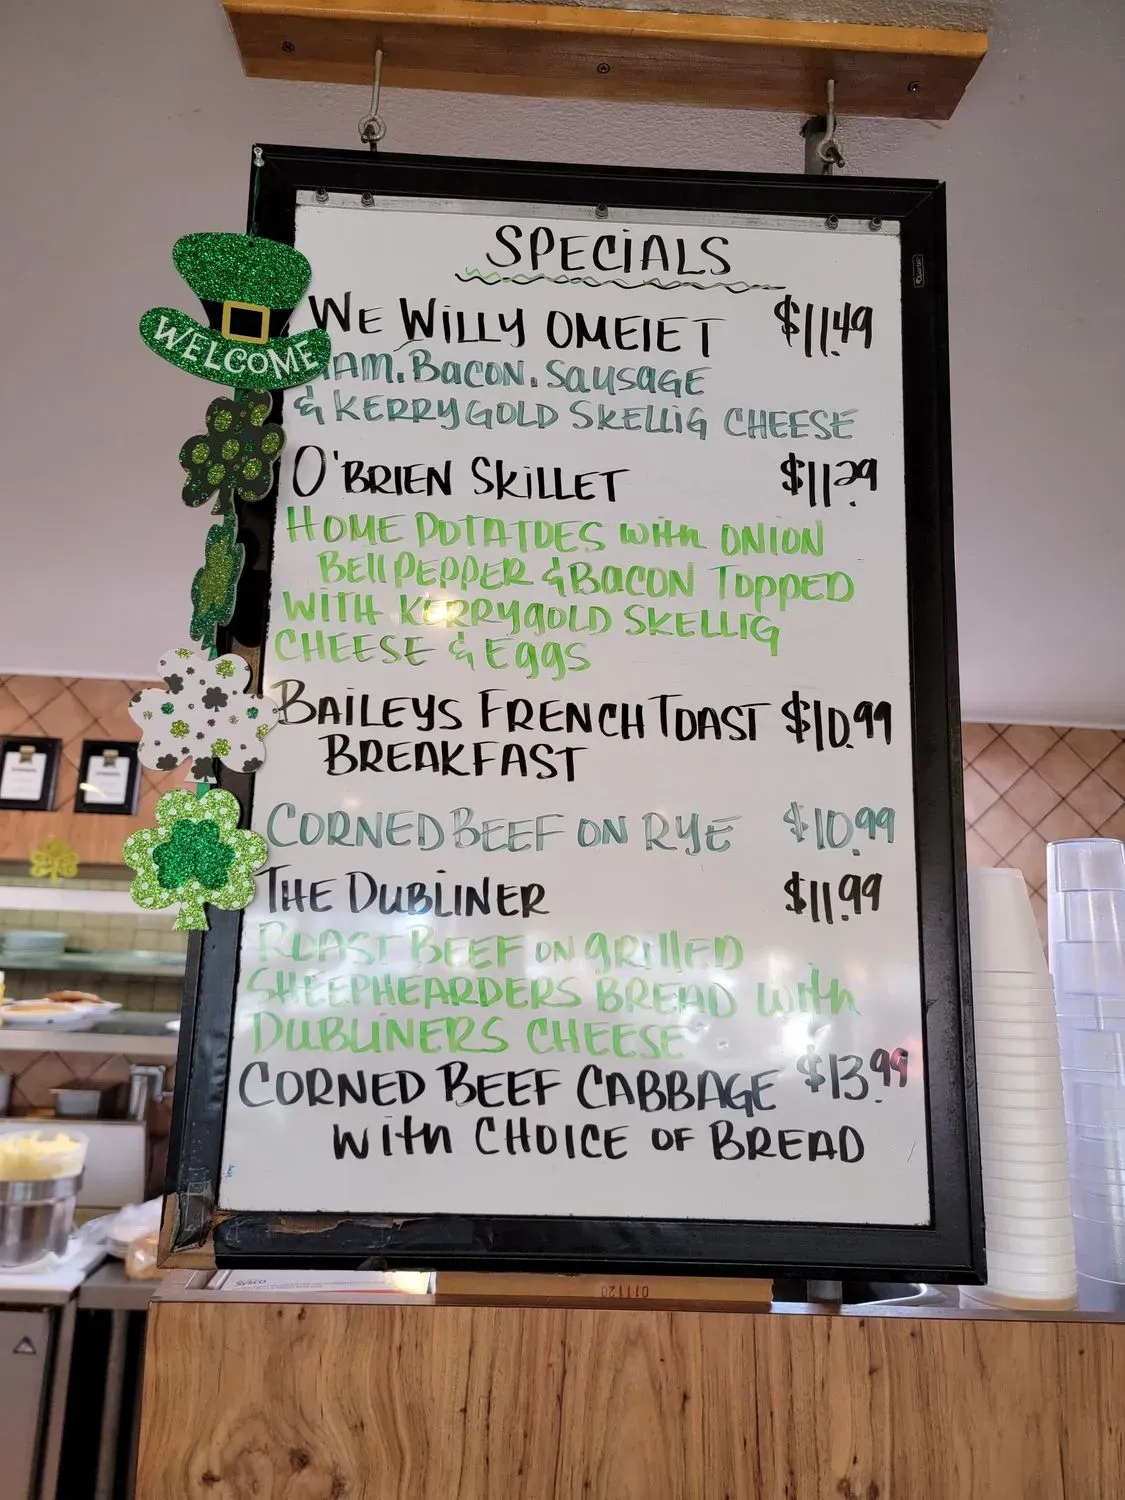 SPECiALS
WE WILLY OMElET $11.49
WELCOME
HAM, BACON, SAUSAGE
& KERRYGOLD SKELLiG CHEESE
O'BRIEN SKiLLET $11.29
HOME POTATOES with ONION
BEll PEPPER & BACON TOPPED
WITH KERRYgOLD SKELLIG
CHEESE & EggS
BAILEYS FRENCH TOAST $10.99
BREAKFAST
CORNED BEEF ON RYE $10.99
THE DUBLINER $11.99
ROAST BEEF ON gRillED
SHEEPHEARDERS BREAD with
DUBLINERS CHEESE
CORNED BEEF CABBAGE $13.99
with CHOICE OF BREAD
Sysco
011120